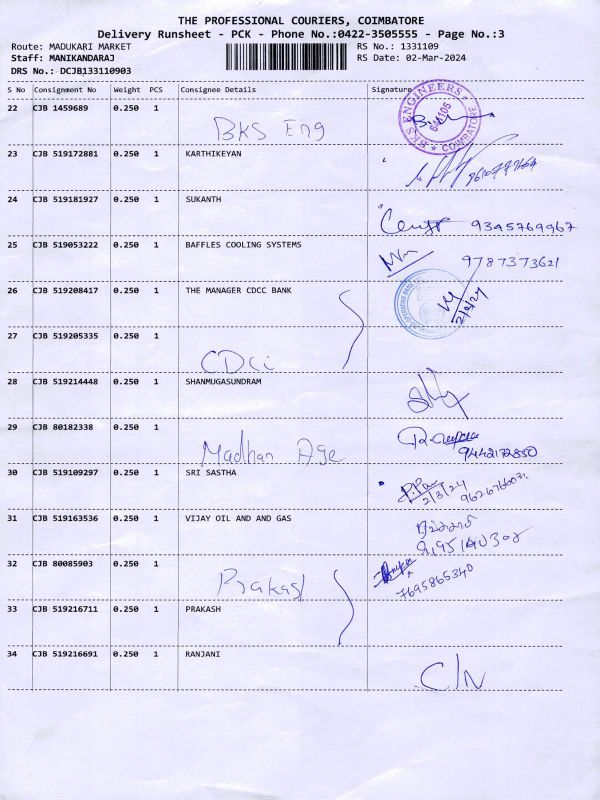 THE PROFESSIONAL COURIERS, COIMBATORE
Delivery Runsheet - PCK - Phone No.:0422-3505555 - Page No.:3
Route: MADUKARI MARKET RS No.: 1331109
Staff: MANIKANDARAJ RS Date: 02-Mar-2024
DRS No.: DCJB133110903
S No Consignment No Weight PCS Consignee Details Signature
22 CJB 1459689 0.250 1
BKS Eng
BKS ENGINEERS * COIMBATORE *
23 CJB 519172881 0.250 1 KARTHIKEYAN
24 CJB 519181927 0.250 1 SUKANTH
9345769967
25 CJB 519053222 0.250 1 BAFFLES COOLING SYSTEMS
9787373621
26 CJB 519208417 0.250 1 THE MANAGER CDCC BANK
2/3/24
27 CJB 519205335 0.250 1
CDCC
28 CJB 519214448 0.250 1 SHANMUGASUNDRAM
29 CJB 80182338 0.250 1
Madhan Age
9442172850
30 CJB 519109297 0.250 1 SRI SASTHA
2/3/24
31 CJB 519163536 0.250 1 VIJAY OIL AND AND GAS
32 CJB 80085903 0.250 1
Prakash
7695865340
33 CJB 519216711 0.250 1 PRAKASH
34 CJB 519216691 0.250 1 RANJANI
C/N